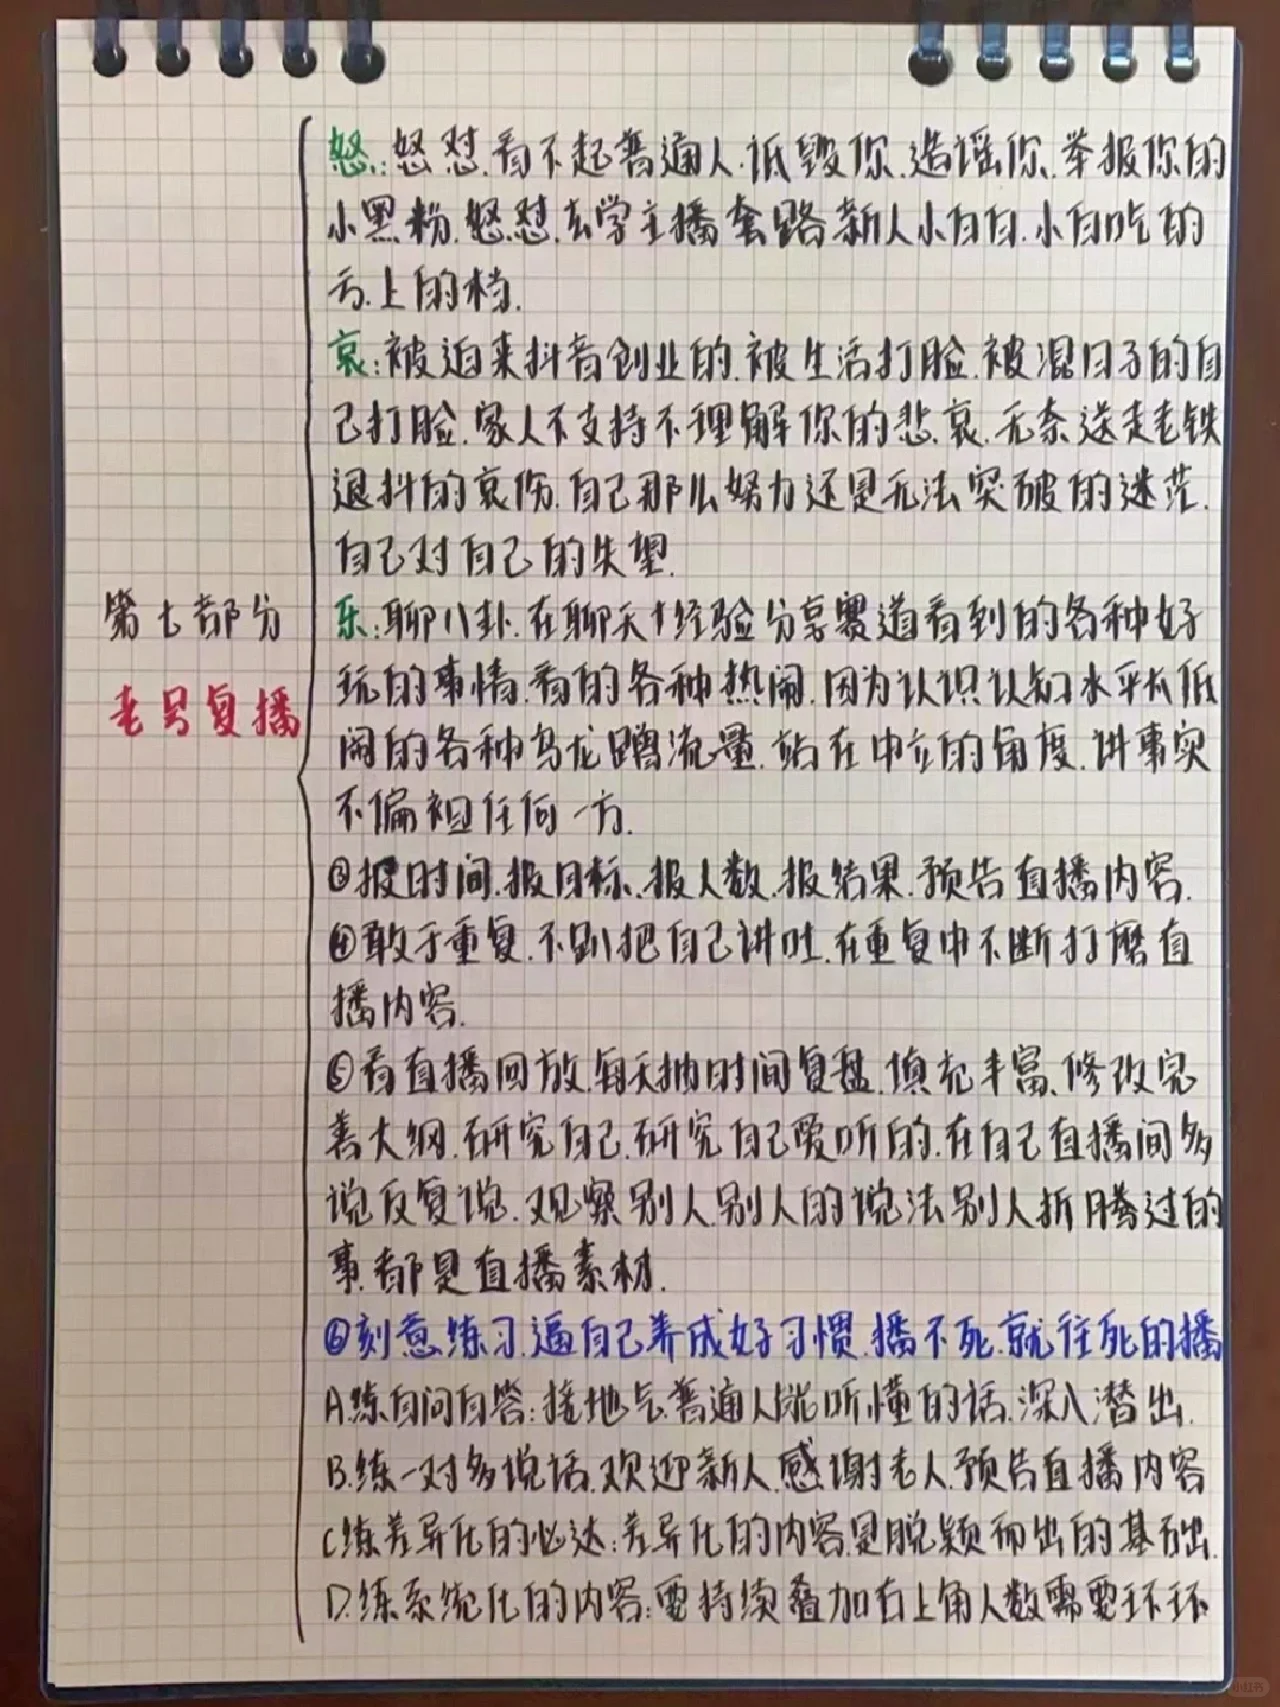 怒:怒怼.看不起普通人.诋毁你.造谣你.举报你的
小黑粉.怒怼.玄学主播套路新人小白白.小白吃的
亏.上的档.
哀:被迫来抖音创业的.被生活打脸.被混日子的自
己打脸.家人不支持不理解你的悲哀.无奈送走老铁
退抖的哀伤.自己那么努力还是无法突破的迷茫.
自己对自己的失望.
第七部分
老号复播
乐:聊八卦.在聊天+经验分享赛道看到的各种好
玩的事情.看的各种热闹.因为认识认知水平太低
闹的各种乌龙蹭流量.站在中立的角度.讲事实
不偏袒任何一方.
③报时间.报目标.报人数.报结果.预告直播内容.
④敢于重复.不趴把自己讲吐.在重复中不断打磨直
播内容.
⑤看直播回放.每天抽时间复盘.填充丰富.修改完
善大纲.研究自己.研究自己爱听的.在自己直播间多
说反复说.观察别人.别人的说法别人折腾过的
事.都是直播素材.
⑥刻意练习.逼自己养成好习惯.播不死.就往死的播
A.练自问自答:接地气.普通人能听懂的话.深入潜出.
B.练一对多说话.欢迎新人.感谢老人.预告直播内容
C.练差异化的必达:差异化的内容是脱颖而出的基础.
D.练系统化的内容:要持续叠加右上角人数需要环环
小红书